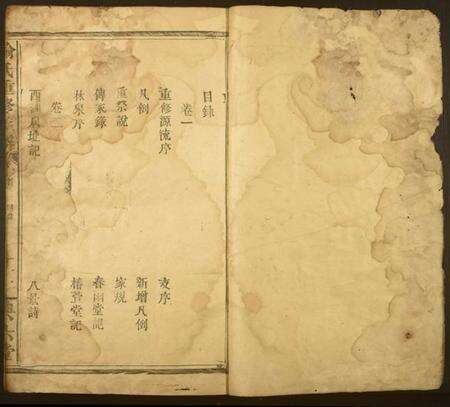 目錄
卷一
重修源流序 支序
凡例 新增凡例
重祭說 家規
傳家錄 春雨堂記
林泉序 椿萱堂記
卷二
基址記 八景詩
氏重修